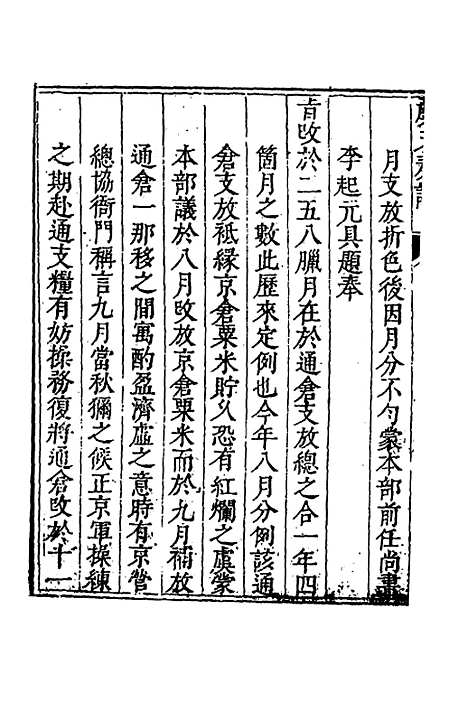 月支放折色後因月分不勻蒙本部前任尚書
李起元具題奉
旨改於二五八臘月在於通倉支放總之合一年四
箇月之數此歷來定例也今年八月分例該通
倉支放祗緣京倉粟米貯久恐有紅爛之虞蒙
本部議於八月改放京倉粟米而於九月補放
通倉一那移之間寓酌盈濟虛之意時有京營
總協衙門稱言九月當秋獮之候正京軍操練
之期赴通支糧有妨操務復將通倉改於十一